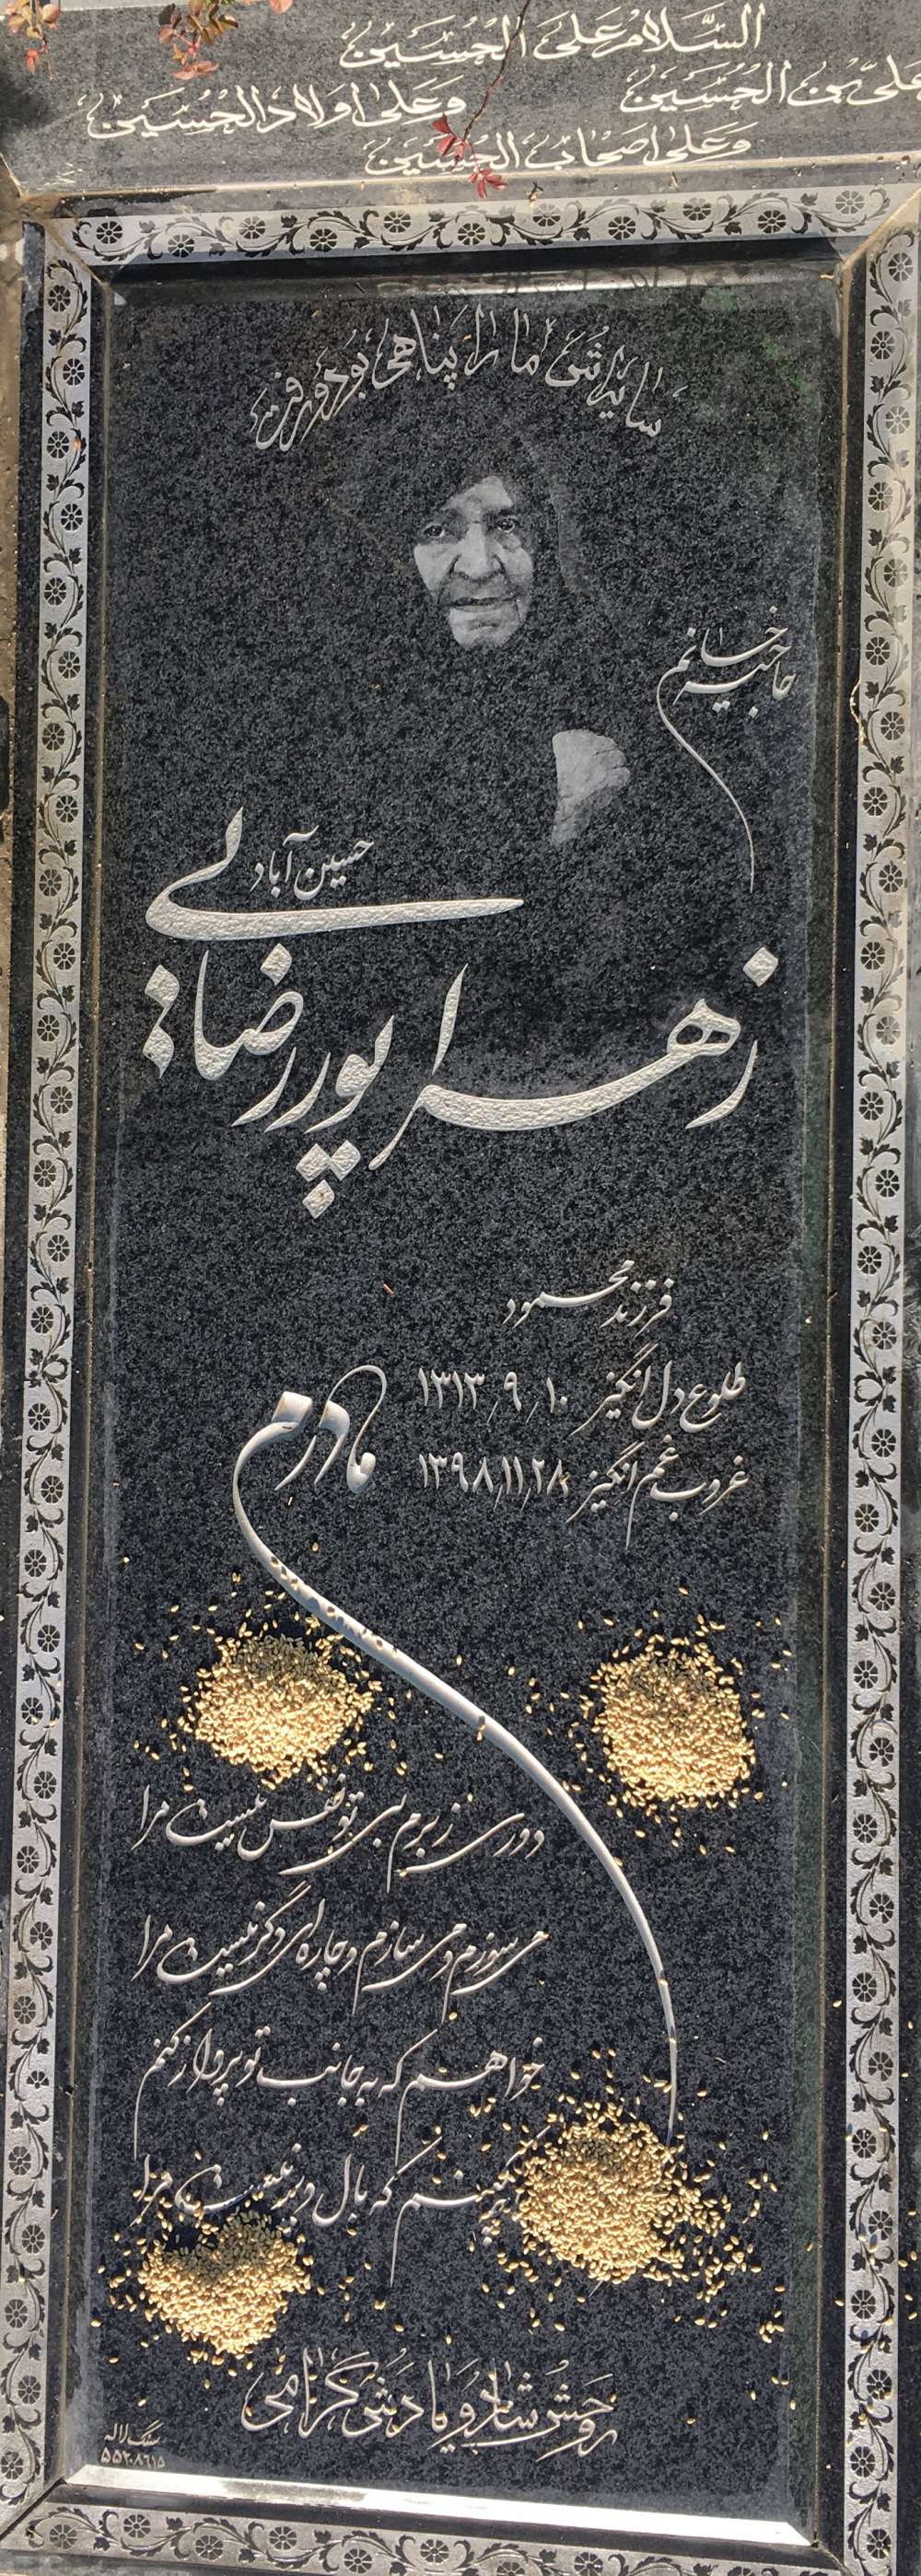 السَّلامُ عَلَی الحُسَین
عَلی بن الحُسَین وَ عَلی اولادِ الحُسَین
وَ عَلی اصحاب الحُسَین
سایه‌اش ما را پناهی بود و رفت
حاجیه خانم
حسین آبادی
زهرا پور رضایی
فرزند محمود
طلوع دل انگیز ۱۳۱۳/۹/۱۰
غروب غم انگیز ۱۳۹۸/۱۱/۲۸
مادرم
دوری ز برم بی تو نفس نیست مرا
می سوزم و می سازم و چاره‌ای دگر نیست مرا
خواهم که به جانب تو پرواز کنم
چکنم که بال و پر نیست مرا
روحش شاد و یادش گرامی
سنگ لاله
۵۵۲۰۸۶۱۵